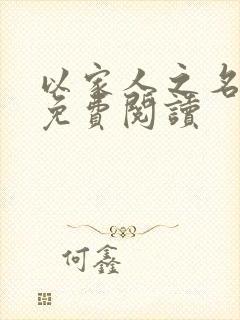 以家人之名
免費閱讀
何鑫